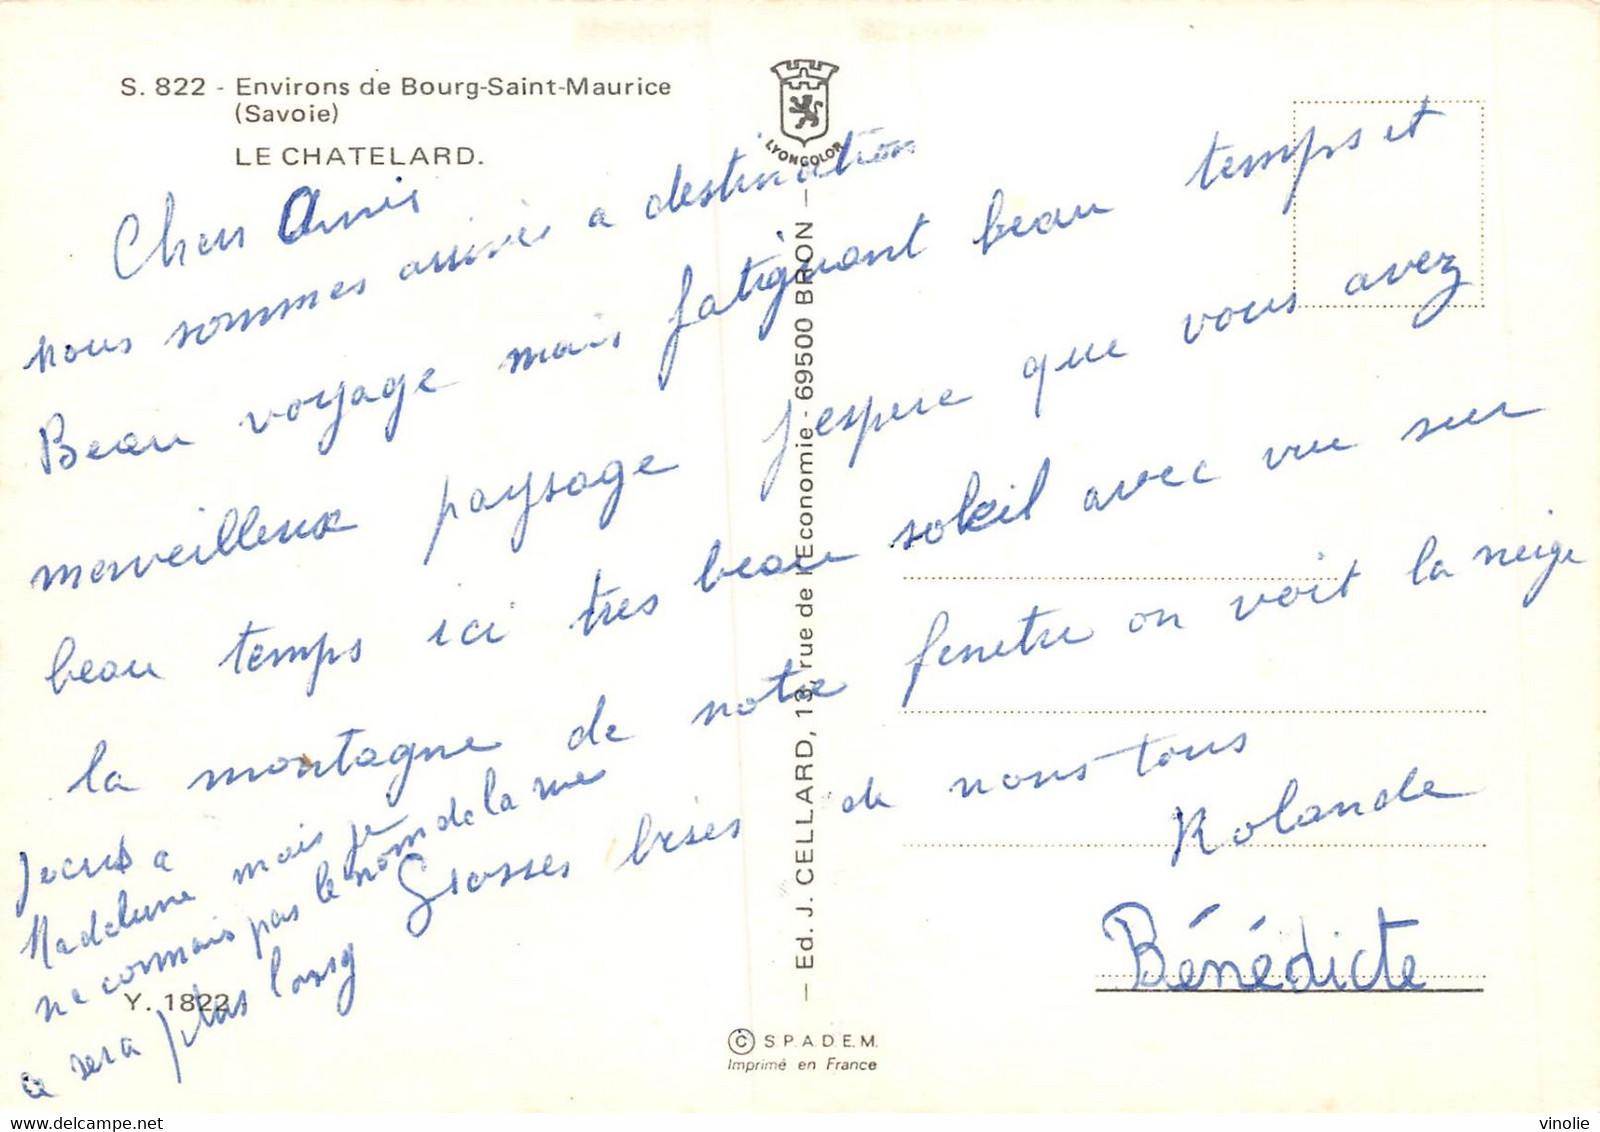 S. 822 - Environs de Bourg-Saint-Maurice
(Savoie)
LE CHATELARD.
LYONCOLOR
Chers Amis
nous sommes arrivés a destination
Beau voyage mais fatiguant beau temps et
merveilleux paysage j'espere que vous avez
beau temps ici tres beau soleil avec vue sur
la montagne de notre fenetre on voit la neige
Grosses bises de nous tous
Rolande
Bénédicte
a
Madeleine mais je
ne connais pas le nom de la rue
ce sera plus long
Y. 1822 -
— Ed. J. CELLARD, 13, rue de l'Economie - 69500 BRON —
© S.P.A.D.E.M.
Imprimé en France
vinolie